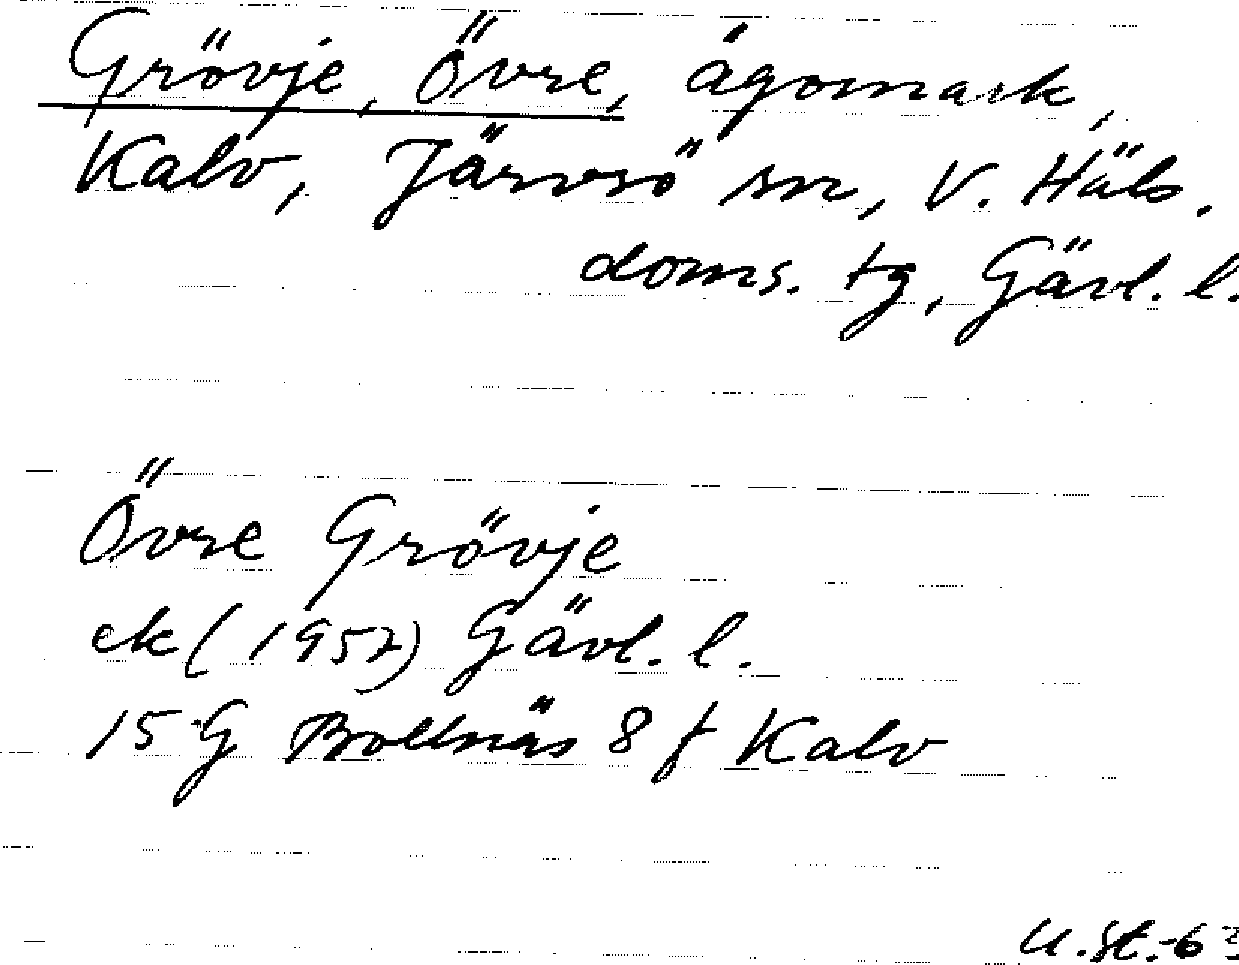 Grövje, Övre, ägomark,
Kalv, Järvsö sn, V. Häls.
doms. tg, Gävl. l.
Övre Grövje
ek (1957) Gävl. l.
15 G Bollnäs 8 f Kalv
U.St.-63